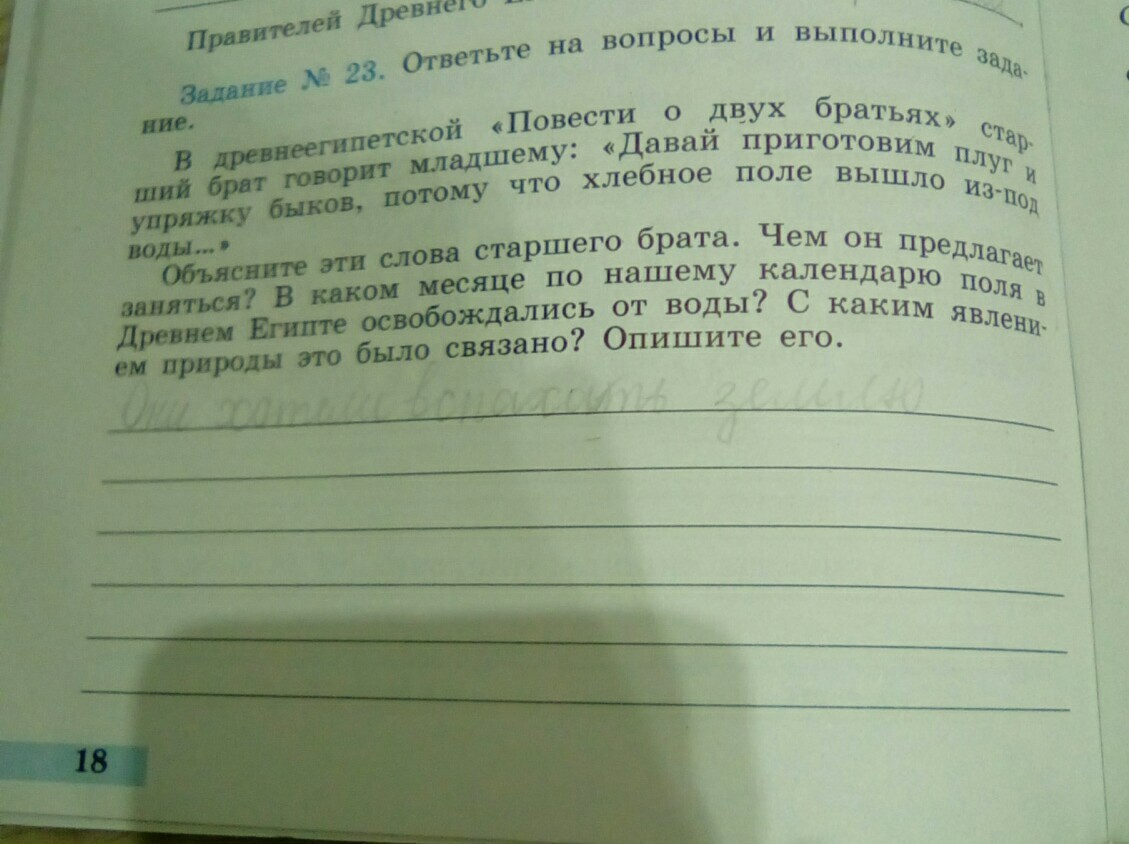 Правителей Древнего
Задание № 23. Ответьте на вопросы и выполните зада-
ние.
В древнеегипетской «Повести о двух братьях» стар-
ший брат говорит младшему: «Давай приготовим плуг и
упряжку быков, потому что хлебное поле вышло из-под
воды...»
Объясните эти слова старшего брата. Чем он предлагает
заняться? В каком месяце по нашему календарю поля в
Древнем Египте освобождались от воды? С каким явлени-
ем природы это было связано? Опишите его.
Они хотели вспахать землю
18